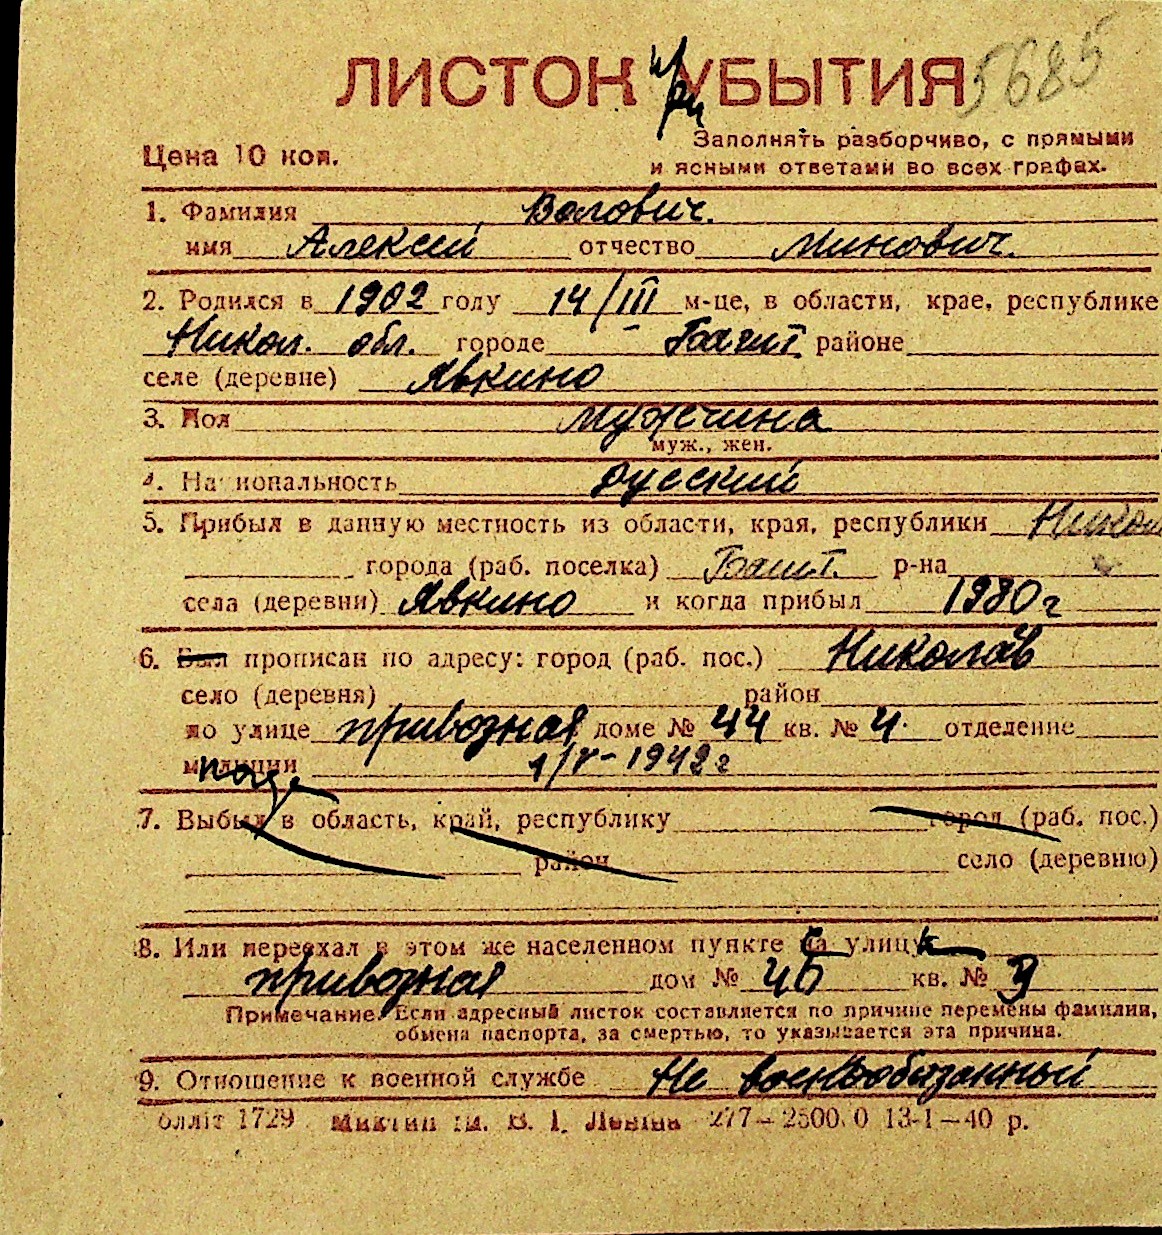 ЛИСТОК УБЫТИЯ 5685
Цена 10 коп.
Заполнять разборчиво, с прямыми
и ясными ответами во всех графах.
1. Фамилия Волович.
имя Алексей отчество Минович.
2. Родился в 1902 году 14/III м-це, в области, крае, республике
Никол. обл. городе Башт. районе
селе (деревне) Явкино
3. Пол мужчина
муж., жен.
4. Национальность русский
5. Прибыл в данную местность из области, края, республики Никол
города (раб. поселка) Башт. р-на
села (деревни) Явкино и когда прибыл 1930 г
6. Был прописан по адресу: город (раб. пос.) Николаев
село (деревня) район
по улице приводная доме № 44 кв. № 4. отделение
милиции 1/V-1942 г
7. Выбыл в область, край, республику город (раб. пос.)
район село (деревню)
8. Или переехал в этом же населенном пункте на улицу
приводная дом № 46 кв. № 3
Примечание. Если адресный листок составляется по причине перемены фамилии,
обмена паспорта, за смертью, то указывается эта причина.
9. Отношение к военной службе Не военнообязанный
блліт 1729 ім. В. І. Леніна 277—2500.0 13-1—40 р.